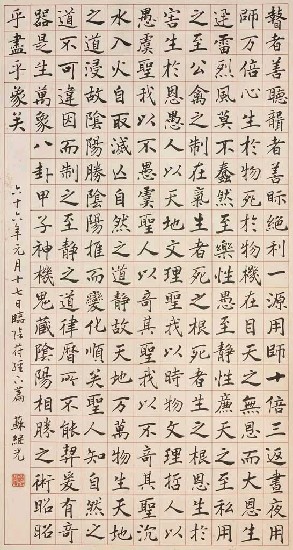 瞽者善聽聾者善眎絕利一源用師十倍三返晝夜用
師万倍心生於物死於物機在目天之無恩而大恩生
迅雷烈風莫不蠢然至樂性愚至靜性廉天之至私用
之至公禽之制在氣生者死之根死者生之根恩生於
害生於恩愚人以天地文理聖我以時物文理哲人以
愚虞聖我以不愚虞聖人以奇其聖我以不奇其聖沉
水入火自取滅亡自然之道靜故天地萬物生天地
之道浸故陰陽勝陰陽推而變化順矣聖人知自然之
道不可違因而制之至靜之道律曆所不能契爰有奇
器是生萬象八卦甲子神機鬼藏陰陽相勝之術昭昭
乎盡乎象矣
六十六年元月十七日臨陰符經下篇 蘇